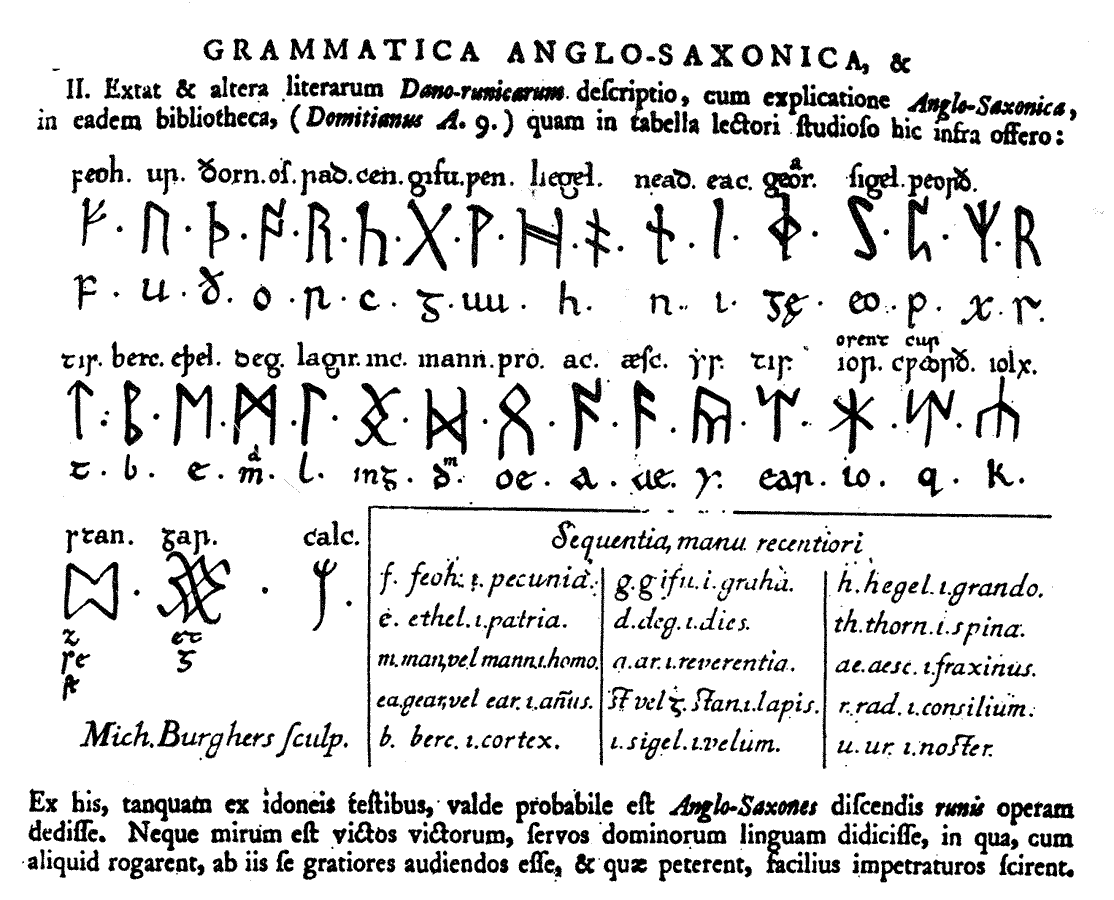 GRAMMATICA ANGLO-SAXONICA, &
II. Extat & altera literarum Dano-runicarum deſcriptio, cum explicatione Anglo-Saxonica,
in eadem bibliotheca, (Domitianus A. 9.) quam in tabella lectori ſtudioſo hic infra offero:
feoh. ur. ðorn. oſ. rad. cen. gifu. pen. hegel. nead. eac. geór. ſigel. peorð.
a
ᚠ · ᚢ · ᚦ · ᚩ · ᚱ · ᚳ · ᚷ · ᚹ · ᚻ · ᛡ · ᚾ · ᛁ · ᛄ · ᛋ · ᛈ · ᛉ · ᚱ
F · u · ð. o · r · c · g · uu · h. n · ı · gę · eo · p · x · r.
orent cur
tir. berc. eþel. deg. lagır. mc. mann. pro. ac. æſc. ẏr. tir. ior. cpeorð. iolx.
ᛏ : ᛒ · ᛖ · ᛗ · ᛚ · ᛝ · ᛞ · ᛟ · ᚪ · ᚫ · ᚣ · ᛠ · ᛡ · ᛢ · ᛣ
d m
t · b · e · m · l · ing · ð. oe · a · ae. y. ear. io. q. k.
ſtan. gar. calc.
ᛥ · ᚸ · ᛣ.
z et
ſe g
ſt
Mich. Burghers ſculp.
Sequentia, manu recentiori
f. feoh: ı. pecunia. g. gifu. i. gratia. h. hegel. ı. grando.
e. ethel. ı. patria. d. deg. ı. dies. th. thorn. ı. spina.
m. man, vel mann. ı. homo. a. ar. ı. reverentia. ae. aesc. ı. fraxinus.
ea. gear, vel ear. ı. añus. ſt vel ʒ. ſtan. ı. lapis. r. rad. ı. consilium.
b. berc. ı. cortex. ı. sigel. ı. velum. u. ur. ı. noſter.
Ex his, tanquam ex idoneis teſtibus, valde probabile eſt Anglo-Saxones diſcendis runis operam
dediſſe. Neque mirum eſt victos victorum, ſervos dominorum linguam didiciſſe, in qua, cum
aliquid rogarent, ab iis ſe gratiores audiendos eſſe, & quæ peterent, facilius impetraturos ſcirent.